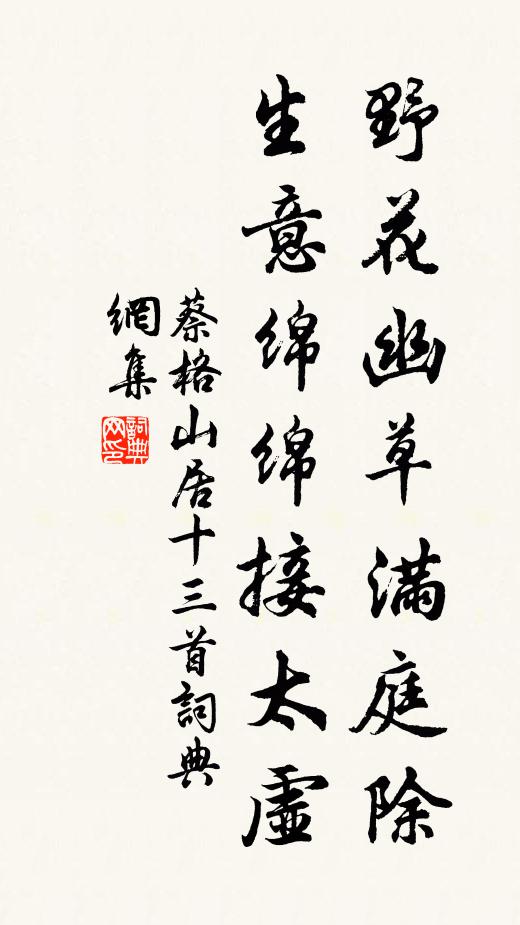 野花幽草满庭除
生意绵绵接太虚
蔡格山居十三首詞典
網集
詞典網印